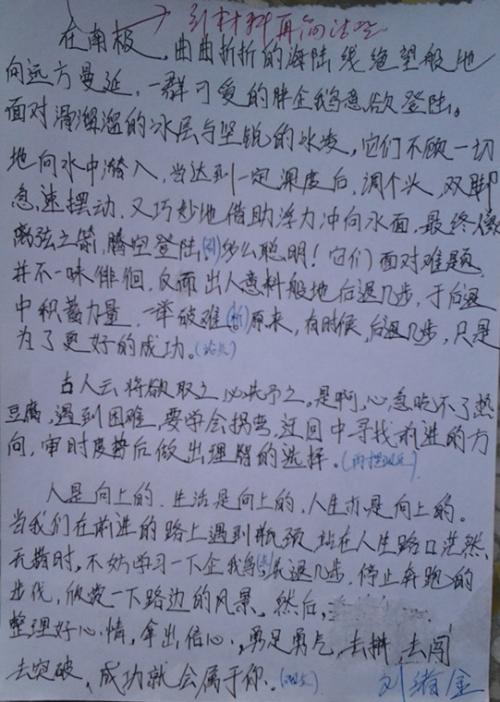 引材料再向活型
在南极，曲曲折折的海陆线绝望般地
向远方曼延，一群可爱的胖企鹅急欲登陆。
面对滑溜溜的冰层与坚锐的冰凌，它们不顾一切
地向水中潜入，当达到一定深度后，调个头，双脚
急速摆动，又巧妙地借助浮力冲向水面，最终像
离弦之箭，腾空登陆，(引)多么聪明！它们面对难题
并不一味徘徊，反而出人意料般地后退几步，于后退
中积蓄力量，一举破难(析)原来，有时候，后退几步，只是
为了更好的成功。(论点)
古人云将欲取之必先予之，是啊，心急吃不了热
豆腐，遇到困难，要学会拐弯，迂回中寻找前进的方
向，审时度势后做出理智的选择。(再摆观点)
人是向上的，生活是向上的，人生亦是向上的。
当我们在前进的路上遇到瓶颈，站在人生路口茫然
无措时，不妨学习一下企鹅，后退几步，停止奔跑的
步伐，欣赏一下路边的风景。然后，
整理好心情，拿出信心，勇足勇气，去拼，去闯
去突破，成功就会属于你。(观点)
刘绪金